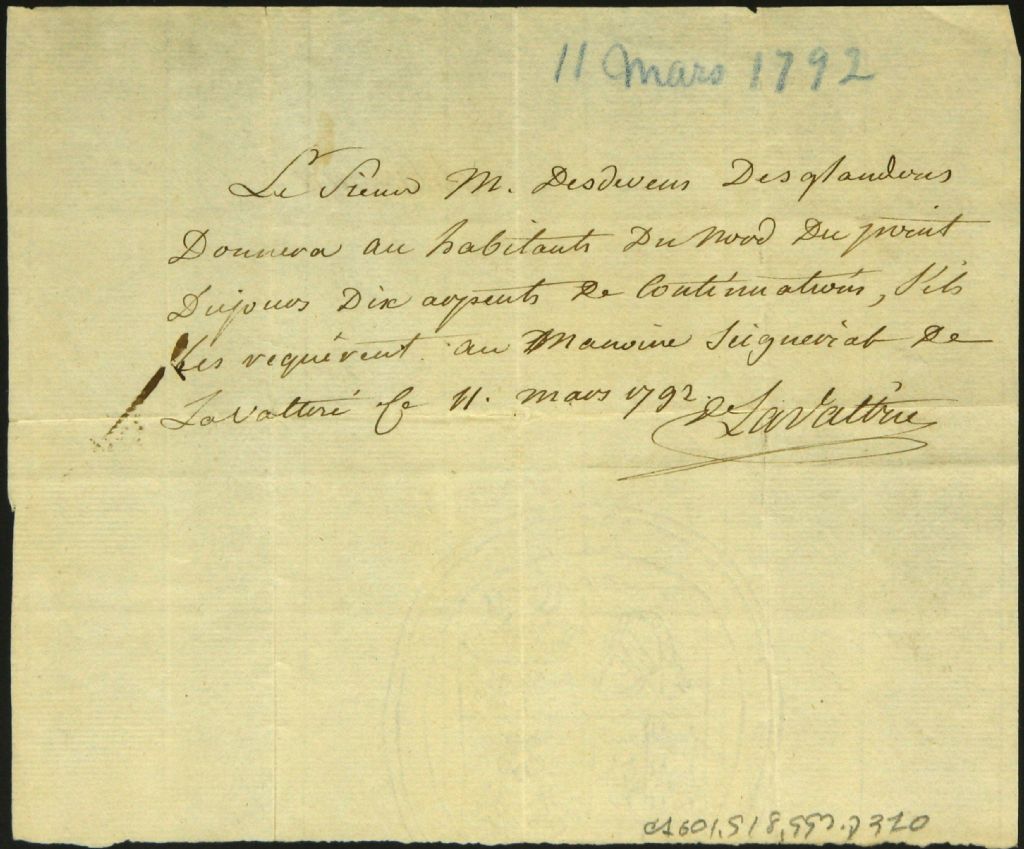 11 mars 1792
Le Sieur M. Desdevens Desglandons
Donnera au habitants Du Nord Du point
Dujour Dix arpents de Continuations, S'ils
Les requérent au Manoire Seigneurial De
LaValtrié Ce 11. mars 1792.
De LaValtrie
P320